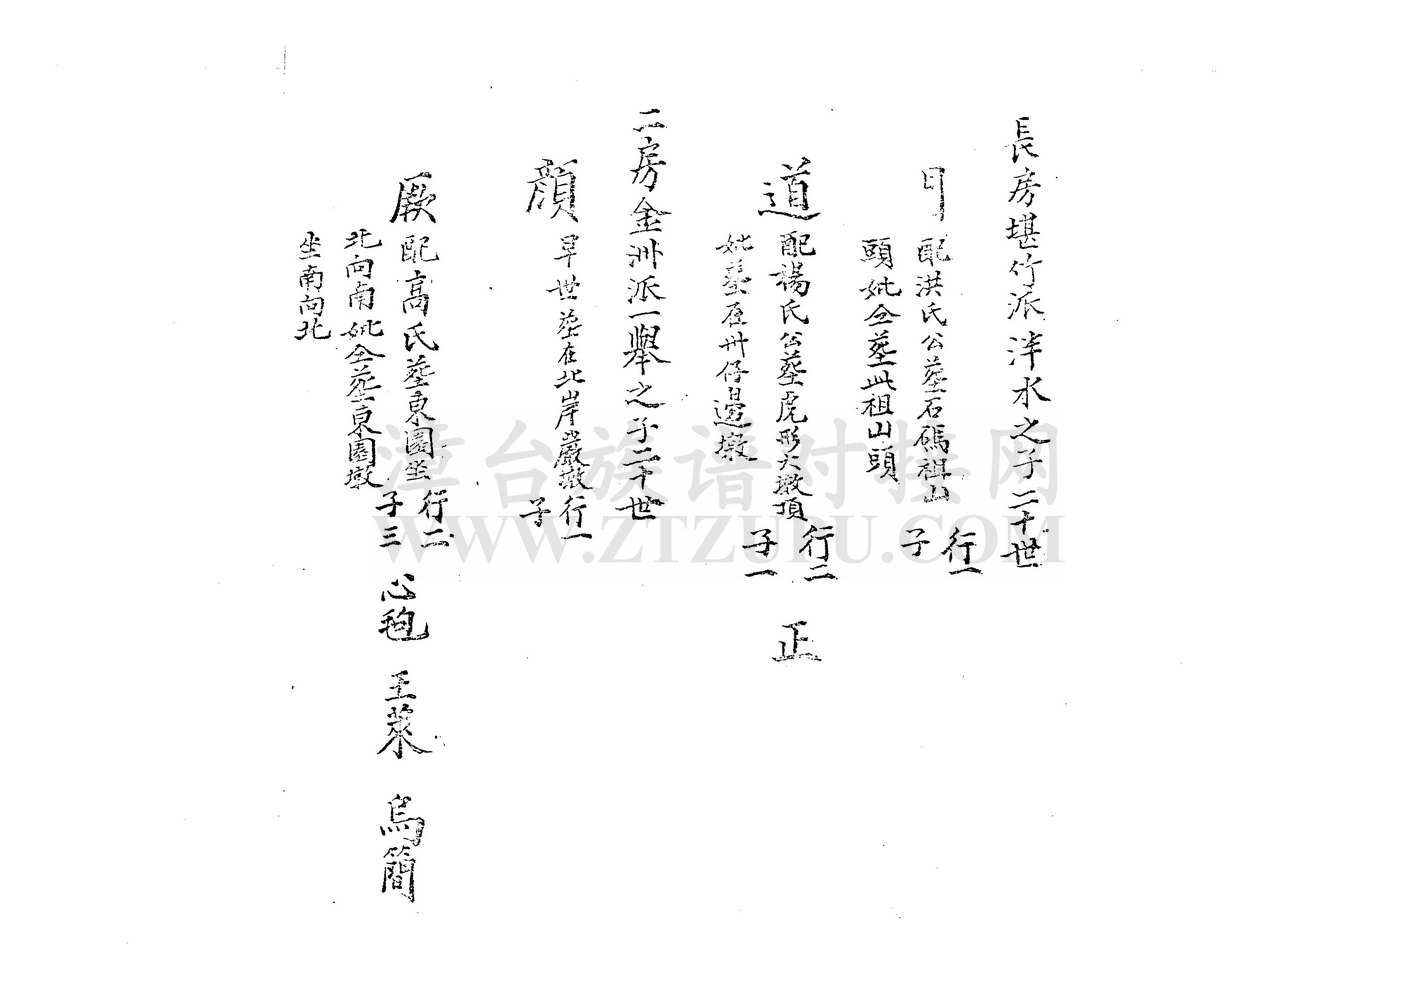 長房堪竹派泮水之子二十世
配洪氏公墓石碼祖山
頭妣仝墓此祖山頭
行一
子
道
配楊氏公墓虎形大墩頂
妣墓在卅仔邊墩
行二
子一
正
二房金洲派一舉之子二十世
顏
早世墓在北岸巖墩
行一
子
厥
配高氏墓東園坐
北向南妣仝墓東園墩
坐南向北
行二
子三
心
王萊
烏簡
漳台族谱对接网
WWW.ZTZUPU.COM